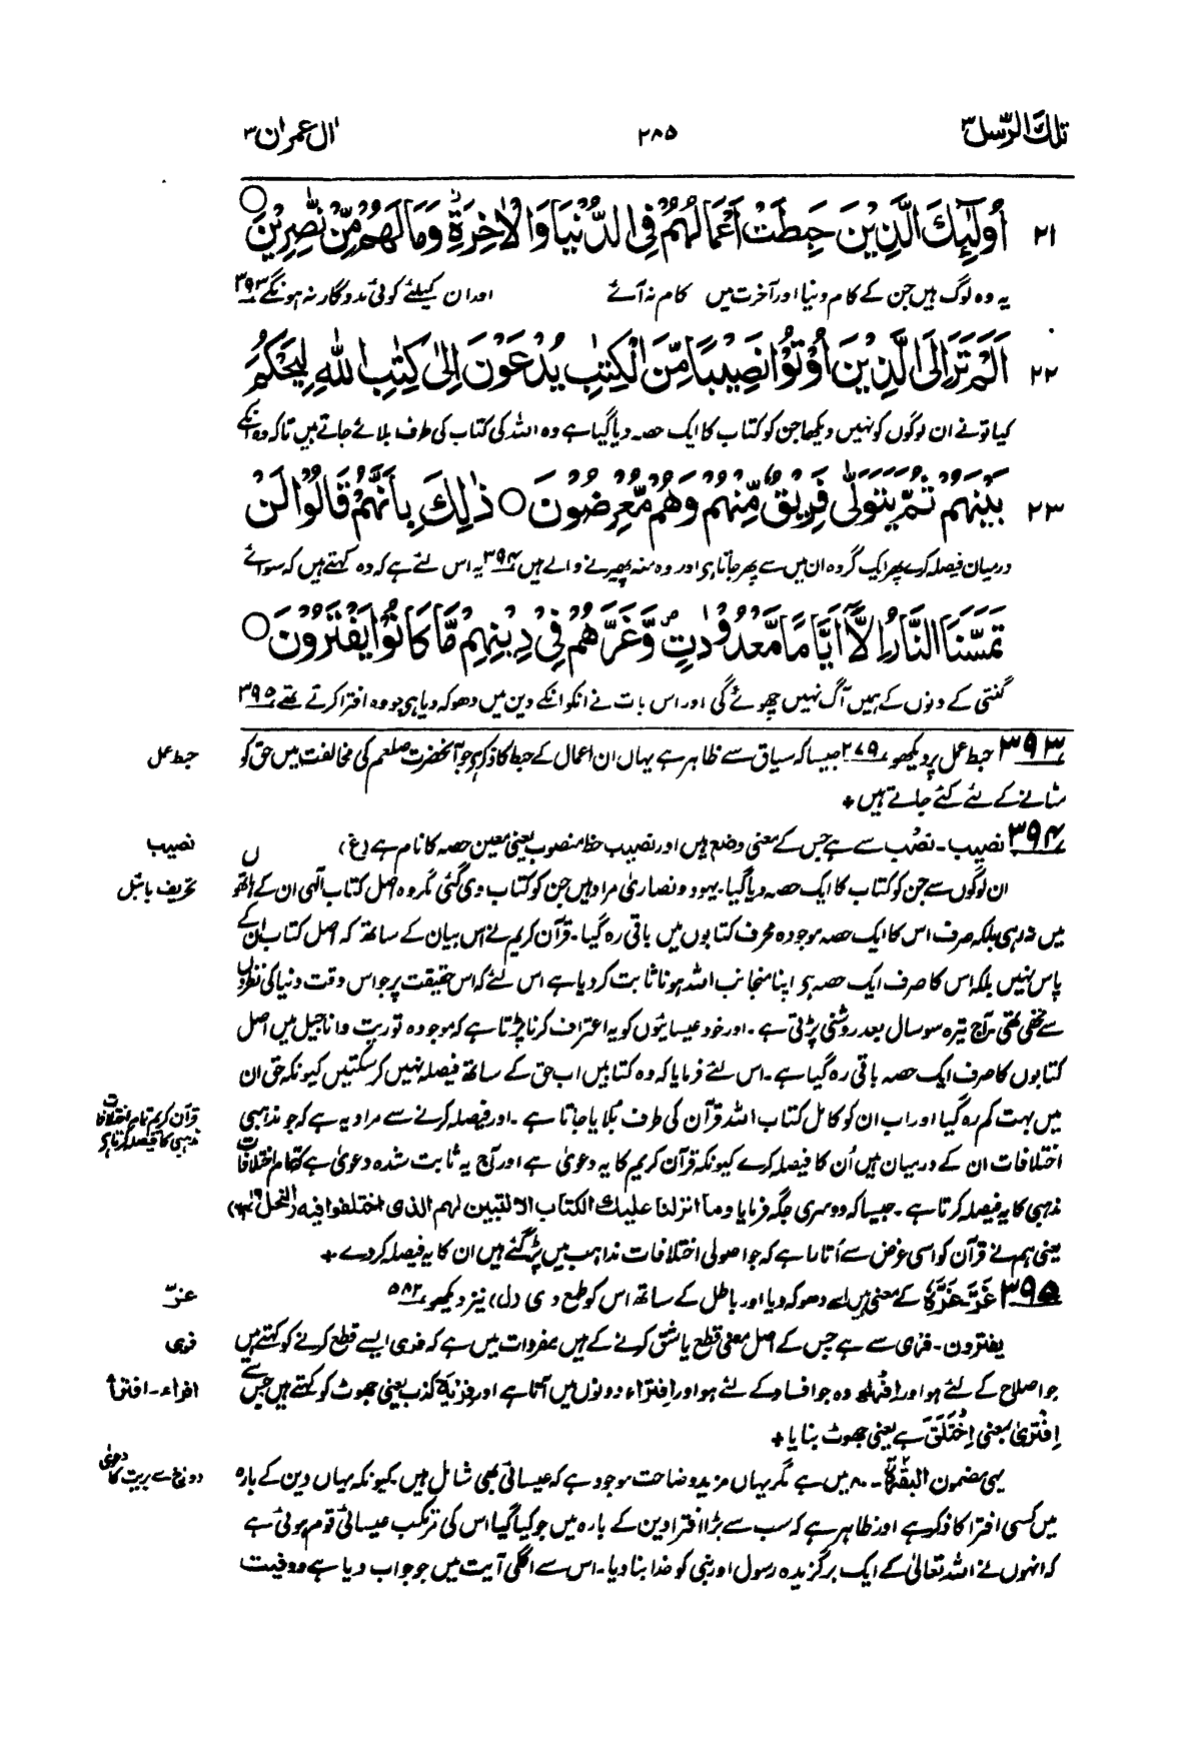 تلك الرّسل ۳
۲۸۵
اٰل عمرٰن ۳
۲۱ اُولٰٓئِكَ الَّذِيْنَ حَبِطَتْ اَعْمَالُهُمْ فِي الدُّنْيَا وَالْاٰخِرَةِ ۚ وَمَا لَهُمْ مِّنْ نّٰصِرِيْنَ ○
یہ وہ لوگ ہیں جن کے کام دنیا اور آخرت میں کام نہ آئے اور ان کیلئے کوئی مددگار نہ ہونگے ۳۹۳
۲۲ اَلَمْ تَرَ اِلَى الَّذِيْنَ اُوْتُوْا نَصِيْبًا مِّنَ الْكِتٰبِ يُدْعَوْنَ اِلٰى كِتٰبِ اللّٰهِ لِيَحْكُمَ
کیا تو نے ان لوگوں کو نہیں دیکھا جن کو کتاب کا ایک حصہ دیا گیا ہے وہ اللہ کی کتاب کی طرف بلائے جاتے ہیں تاکہ وہ انکے
۲۳ بَيْنَهُمْ ثُمَّ يَتَوَلّٰى فَرِيْقٌ مِّنْهُمْ وَهُمْ مُّعْرِضُوْنَ ○ ذٰلِكَ بِاَنَّهُمْ قَالُوْا لَنْ
درمیان فیصلہ کرے پھر ایک گروہ ان میں سے پھر جاتا ہی اور وہ منہ پھیرنے والے ہیں ۳۹۴ یہ اس لئے ہے کہ وہ کہتے ہیں کہ سوائے
تَمَسَّنَا النَّارُ اِلَّآ اَيَّامًا مَّعْدُوْدٰتٍ ۠ وَّغَرَّهُمْ فِيْ دِيْنِهِمْ مَّا كَانُوْا يَفْتَرُوْنَ ○
گنتی کے دنوں کے ہمیں آگ نہیں چھوئے گی اور اس بات نے انکو انکے دین میں دھوکہ دیا ہی جو وہ افترا کرتے تھے ۳۹۵
۳۹۳ حبط عمل پر دیکھو ۲۷۹ جیسا کہ سیاق سے ظاہر ہے یہاں ان اعمال کے حبط کا ذکر ہی جو آنحضرت صلعم کی مخالفت میں حق کو
حبط عمل
مٹانے کے لئے کئے جاتے ہیں +
۳۹۴ نصیب۔ نصْب سے ہے جس کے معنی وضع ہیں اور نصیب حظ منصوب یعنی معین حصہ کا نام ہے (غ)
نصیب
ان لوگوں سے جن کو کتاب کا ایک حصہ دیا گیا۔ یہود و نصاریٰ مراد ہیں جن کو کتاب دی گئی مگر وہ اصل کتاب الٰہی ان کے ہاتھوں
تحریف بائبل
میں نہ رہی بلکہ صرف اس کا ایک حصہ موجودہ محرف کتابوں میں باقی رہ گیا۔ قرآن کریم نے اس بیان کے ساتھ کہ اصل کتاب ان کے
پاس نہیں بلکہ اس کا صرف ایک حصہ ہی اپنا منجانب اللہ ہونا ثابت کر دیا ہے اس لئے کہ اس حقیقت پر جو اس وقت دنیا کی نظروں
سے مخفی تھی۔ آج تیرہ سو سال بعد روشنی پڑتی ہے۔ اور خود عیسائیوں کو یہ اعتراف کرنا پڑتا ہے کہ موجودہ توریت و اناجیل میں اصل
کتابوں کا صرف ایک حصہ باقی رہ گیا ہے۔ اس لئے فرمایا کہ وہ کتابیں اب حق کے ساتھ فیصلہ نہیں کر سکتیں کیونکہ حق ان
میں بہت کم رہ گیا اور اب ان کو کامل کتاب اللہ قرآن کی طرف بلایا جاتا ہے۔ اور فیصلہ کرنے سے مراد یہ ہے کہ جو مذہبی
قرآن کریم تمام اختلافات
مذہبی کا فیصلہ کرتا ہی
اختلافات ان کے درمیان ہیں اُن کا فیصلہ کرے کیونکہ قرآن کریم کا یہ دعویٰ ہے اور آج یہ ثابت شدہ دعویٰ ہے کہ تمام اختلافات
مذہبی کا یہ فیصلہ کرتا ہے۔ جیسا کہ دوسری جگہ فرمایا وما انزلنا علیك الكتاب الا لتبین لهم الذی اختلفوا فیه (النحل ۶۴)
یعنی ہم نے قرآن کو اسی غرض سے اُتارا ہے کہ جو اصولی اختلافات مذاہب میں پڑ گئے ہیں ان کا یہ فیصلہ کر دے +
۳۹۵ غَرَّ غَرَّهٗ کے معنی ہیں اسے دھوکہ دیا اور باطل کے ساتھ اس کو طمع دی (ل) نیز دیکھو ۵۸۲
غرّ
یفترون۔ فری سے ہے جس کے اصل معنی قطع یا شق کرنے کے ہیں مفردات میں ہے کہ فری ایسے قطع کرنے کو کہتے ہیں
فری
جو اصلاح کے لئے ہو اور افراء وہ جو افساد کے لئے ہو اور افتراء دونوں میں آتا ہے اور فریۃ کذب یعنی جھوٹ کو کہتے ہیں جس سے
افراء۔ افتراء
اِفْتَریٰ بمعنی اِخْتَلَقَ ہے یعنی جھوٹ بنایا +
یہی مضمون البقرۃ۔ ۸۰ میں ہے مگر یہاں مزید وضاحت موجود ہے کہ عیسائی بھی شامل ہیں کیونکہ یہاں دین کے بارہ
دوزخ سے بریت کا دعویٰ
میں کسی افترا کا ذکر ہے اور ظاہر ہے کہ سب سے بڑا افترا دین کے بارہ میں جو کیا گیا اس کی مرتکب عیسائی قوم ہوئی ہے
کہ انہوں نے اللہ تعالیٰ کے ایک برگزیدہ رسول اور نبی کو خدا بنا دیا۔ اس سے اگلی آیت میں جو جواب دیا ہے ووفیت